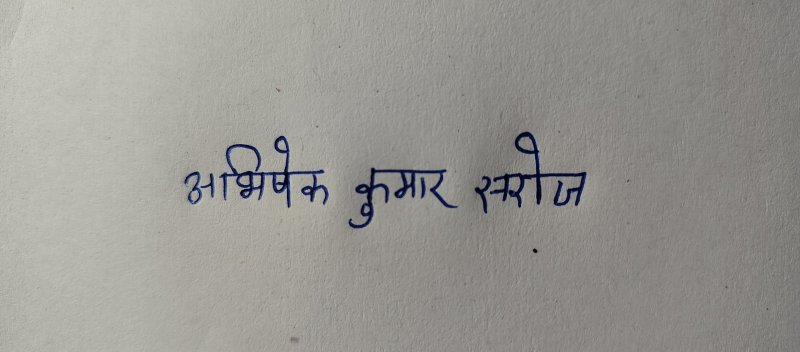 अभिषेक कुमार सरोज